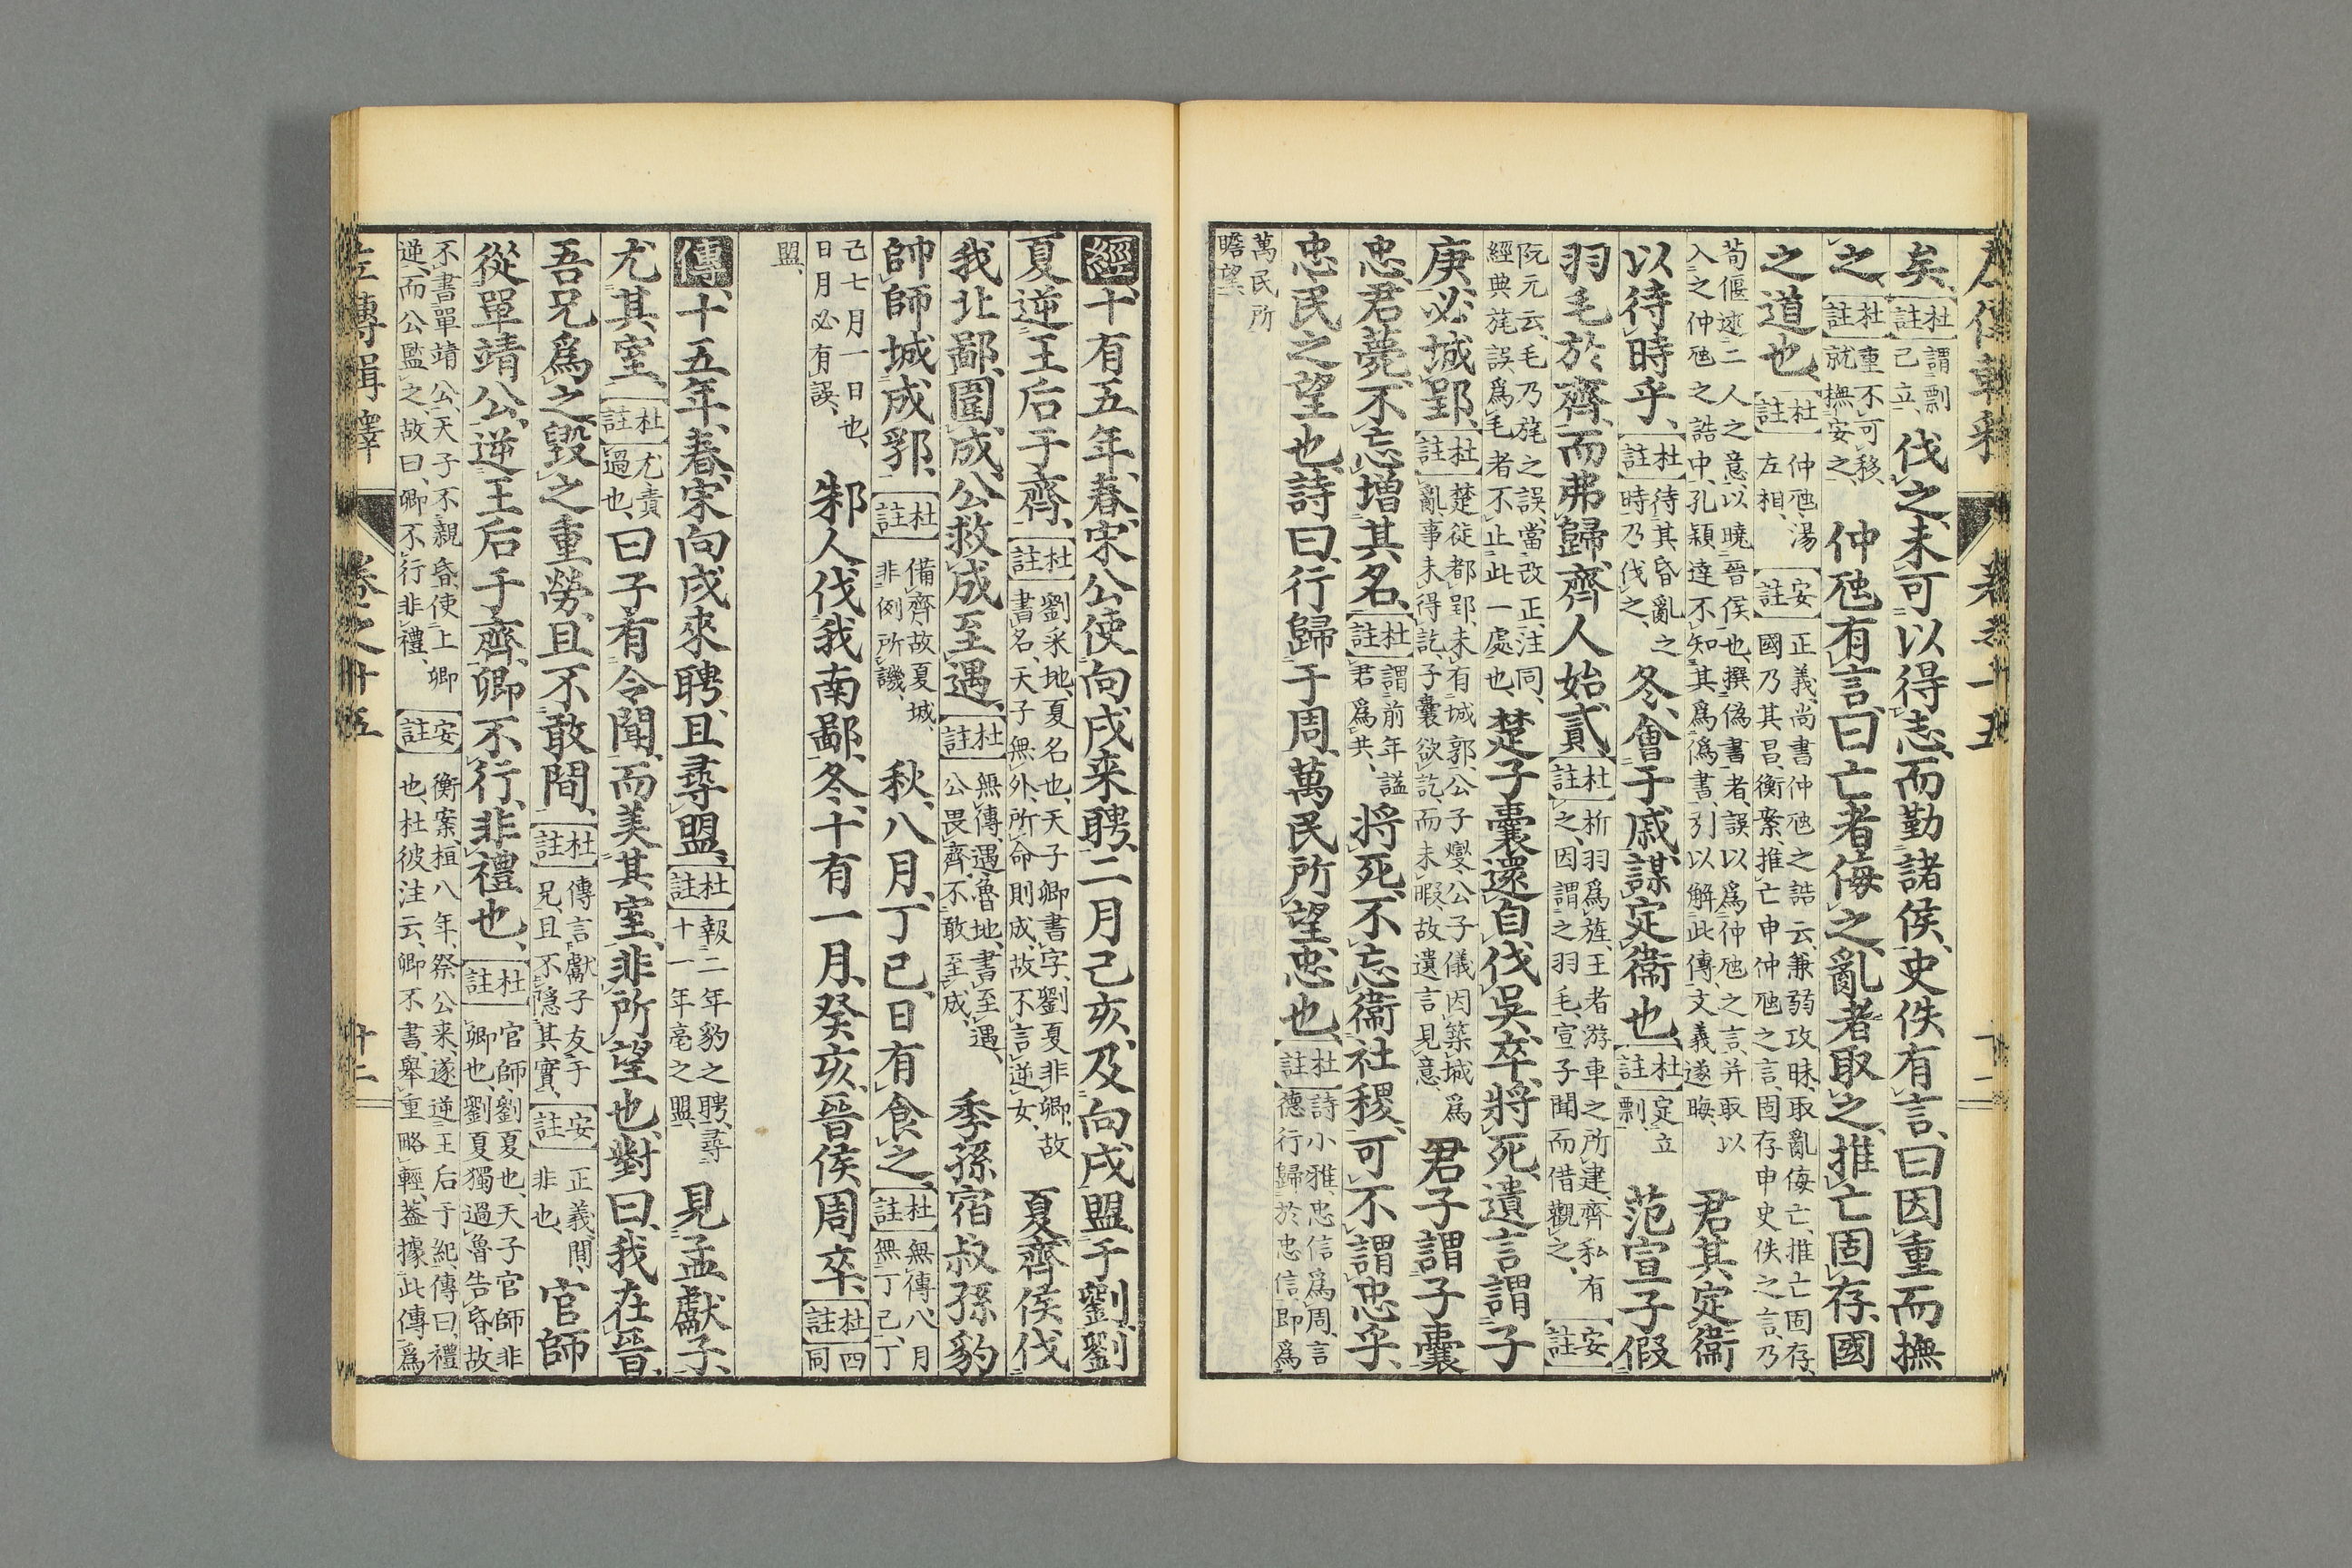 左傳輯釋 卷之十五 十二
矣、杜註謂剽己立、伐之、未可以得志、而勤諸侯、史佚有言、曰、因重而撫
之、杜註重不可移、就撫安之、仲虺有言、曰、亡者侮之、亂者取之、推亡固存、國
之道也、杜註仲虺、湯左相、安註正義、尚書仲虺之誥云、兼弱攻昧、取亂侮亡、推亡固存、國乃其昌、衡案、推亡申仲虺之言、固存申史佚之言、乃
荀偃述二人之意、以曉晉侯也、撰偽書者、誤以爲仲虺之言、并取以入之仲虺之誥中、孔穎達不知其爲僞書、引以解此傳、文義遂晦、君其定衞
以待時乎、杜註待其昏亂之時乃伐之、冬、會于戚、謀定衞也、杜註定立剽、范宣子假
羽毛於齊、而弗歸、齊人始貳、杜註析羽爲旌、王者游車之所建、齊私有之、因謂之羽毛、宣子聞而借觀之、安註
阮元云、毛乃旄之誤、當改正、注同、經典旄誤爲毛者、不止此一處也、楚子囊還自伐吳、卒、將死、遺言謂子
庚、必城郢、杜註楚徙都郢、未有城郭、公子燮、公子儀因築城爲亂、事未得訖、子囊欲訖、而未暇、故遺言見意、君子謂子囊
忠、君薨、不忘增其名、杜註謂前年謚君爲共、將死、不忘衞社稷、可不謂忠乎、
忠民之望也、詩曰、行歸于周、萬民所望、忠也、杜註詩小雅、忠信爲周、言德行歸於忠信、即爲
萬民所瞻望、
經十有五年、春、宋公使向戌來聘、二月己亥、及向戌盟于劉、劉
夏逆王后于齊、杜註劉采地、夏名也、天子卿書字、劉夏非卿、故書名、天子無外、所命則成、故不言逆女、夏、齊侯伐
我北鄙、圍成、公救成、至遇、杜註無傳、遇、魯地、書至遇、公畏齊、不敢至成、季孫宿叔孫豹
帥師城成郛、杜註備齊、故夏城、非例所譏、秋、八月、丁巳、日有食之、杜註無傳、八月無丁巳、丁
己七月一日也、日月必有誤、邾人伐我南鄙、冬、十有一月、癸亥、晉侯周卒、杜註四同
盟、
傳十五年、春、宋向戌來聘、且尋盟、杜註報二年豹之聘、尋十一年亳之盟、見孟獻子、
尤其室、杜註尤責過也、曰、子有令聞、而美其室、非所望也、對曰、我在晉、
吾兄爲之、毀之重勞、且不敢間、杜註傳言獻子友于兄、且不隱其實、安註正義、間、非也、官師
從單靖公、逆王后于齊、卿不行、非禮也、杜註官師、劉夏也、天子官師非卿也、劉夏獨過魯告昏、故
不書單靖公、天子不親昏、使上卿逆、而公監之、故曰、卿不行非禮、安註衡案、桓八年、祭公來、遂逆王后于紀、傳曰、禮也、杜彼注云、卿不書、舉重略輕、蓋據此傳爲
左傳輯釋 卷之十五 十二